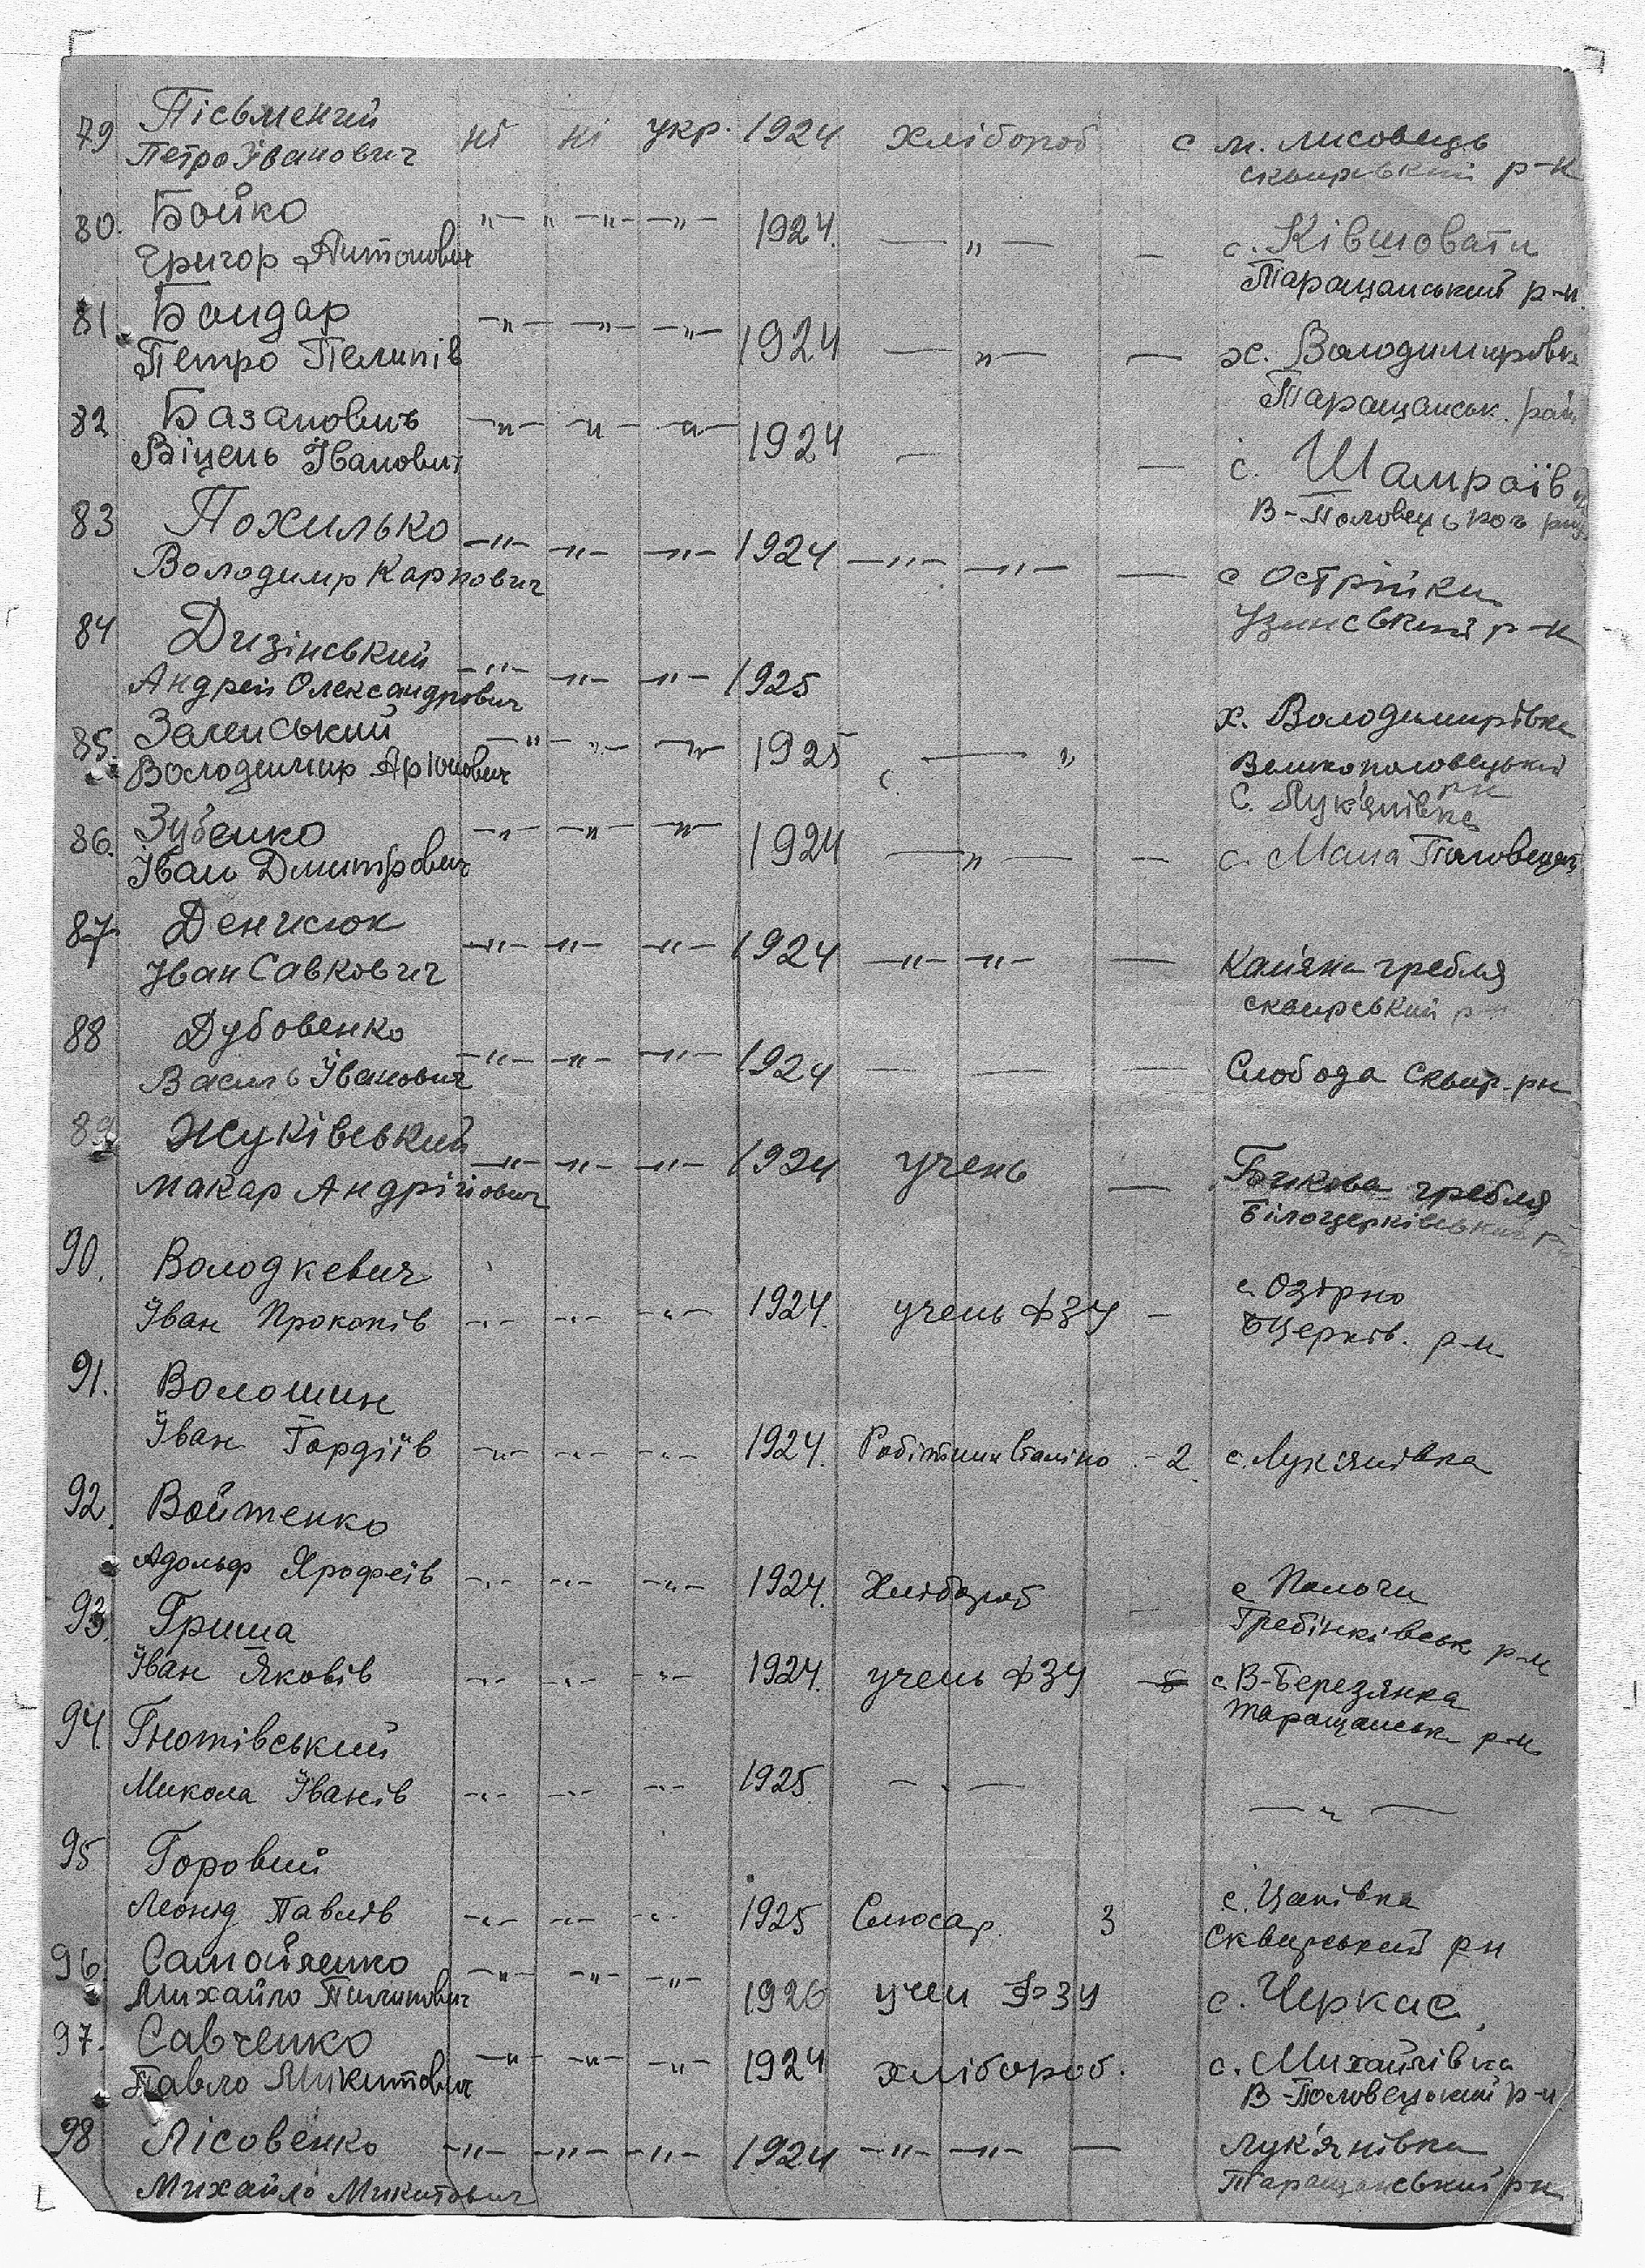 79 Пісьмений ні ні укр. 1924 хлібороб с м. Лисовець
Петро Іванович сквирський р-н
80. Бойко -"- " -"- -"- 1924. -"- — с.
Григор Антонович Таращанський р-н.
81. Бондар -"- -"- -"- 1924 -"- — х. Володимировка
Петро Пелипів Таращанськ. рай
82 Базанович -"- -"- -"- 1924 — — с. Шамраїв
Віцень Іванович В-Половецького
83 Похилько -"- -"- -"- 1924 -"- -"- — с Острійки
Володимир Карпович Узинський р-н
84 Дизінський -"- -"- -"- 1925
Андрей Олександрович х. Володимирівка
85. Заленський -"- -"- -"- 1925 с. — " Великополовецький
Володимир рн
с. Лук'янівка
86. Зубенко -"- -"- -"- 1924 -"- — с. Мала Половецьк
Іван Дмитрович
87 Денисюк -"- -"- -"- 1924 -"- -"- — Кам'яна гребля
Іван Савкович сквирський р
88 Дубовенко -"- -"- -"- 1924 — — — Слобода Сквир. рн
Василь Іванович
89 Жуківський -"- -"- -"- 1924 учень — Бикова гребля
Макар Андрійович Білоцерківський
90. Володкевич с. Озірно
Іван Прокопів -"- -"- -"- 1924. учень ФЗУ — БЦерків. р-н
91. Волошин
Іван Гордіїв -"- -"- -"- 1924. Робітник - 2 с. Лук'янівка
92. Войтенко
Адольф Ярофеів -"- -"- -"- 1924. Хлібороб — с
93. Гриша Гребінківськ р-н
Іван Яковів -"- -"- -"- 1924. учень ФЗУ — с. В-Березянка
94. Гнотівський Таращанськ р-н
Микола Іванів -"- -"- -"- 1925. -"- -"-
95 Горовий
Леонід Павлів -"- -"- -"- 1925 Слюсар 3 с. Цапівка
Сквирський рн
96 Самойленко -"- -"- -"- 1926 учен ФЗУ с. Черкас
Михайло Пилипович
97. Савченко -"- -"- -"- 1924 хлібороб. с. Михайлівка
Павло Микитович В-Половецький р-н
98 Лісовенко -"- -"- -"- 1924 -"- -"- — Лук'янівка
Михайло Микитович Таращанський рн